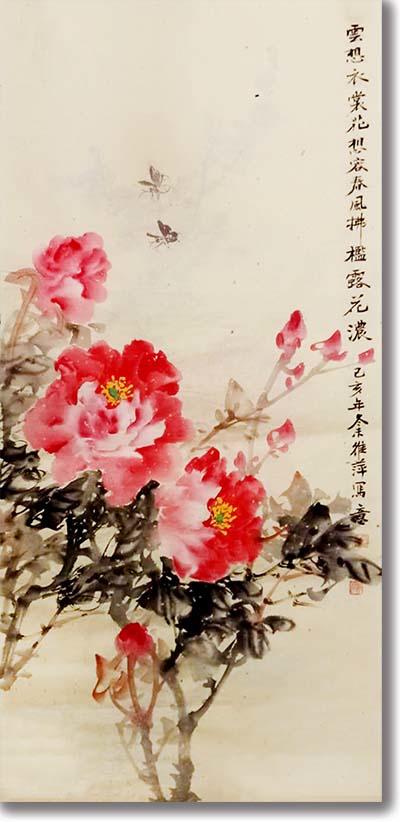 雲想衣裳花想容春風拂檻露花濃
己亥年維萍寫意